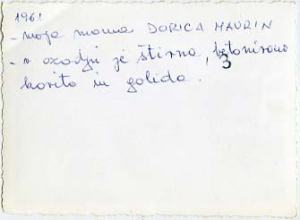 1961
- moja mama DORICA MAVRIN
- v ozadju je štirna, betonirano
korito in golida.
3